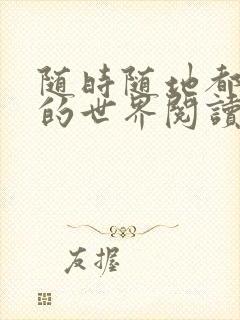 随時随地都
的世界閱讀
友握